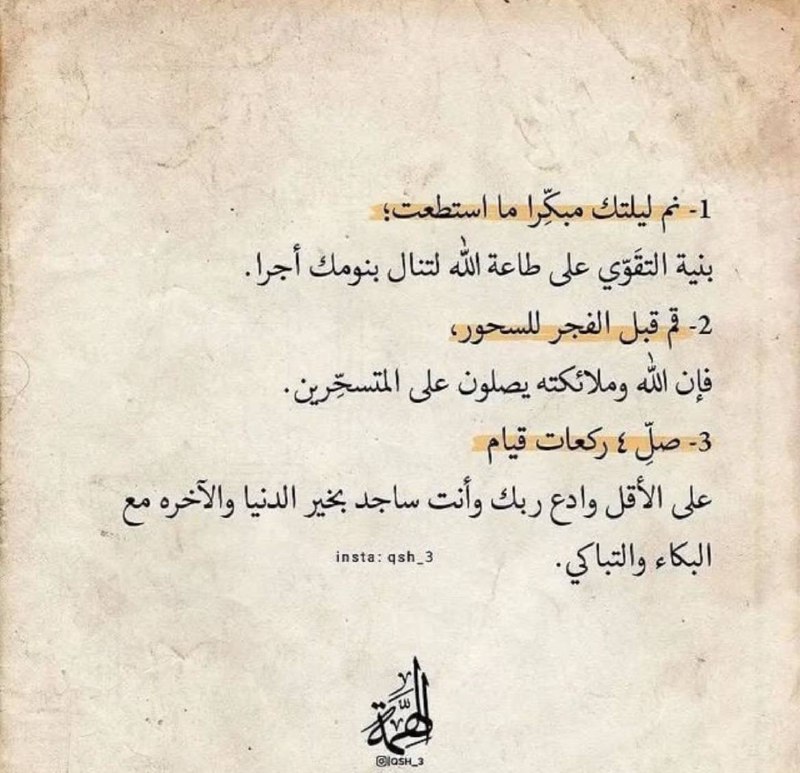 1- نم ليلتك مبكِّرا ما استطعت؛
بنية التقَوّي على طاعة الله لتنال بنومك أجرا.
2- قم قبل الفجر للسحور،
فإن الله وملائكته يصلون على المتسحِّرين.
3- صلِّ ٤ ركعات قيام
على الأقل وادع ربك وأنت ساجد بخير الدنيا والآخره مع
البكاء والتباكي.
insta: qsh_3
الهمَّة
@|QSH_3